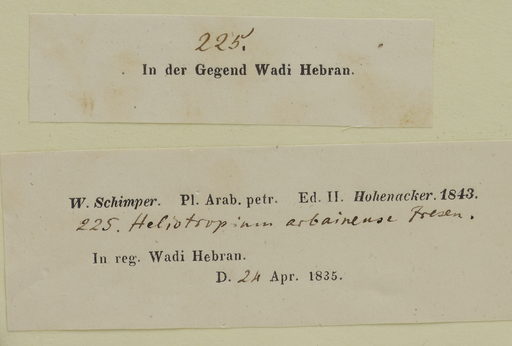 225.
In der Gegend Wadi Hebran.
W. Schimper. Pl. Arab. petr. Ed. II. Hohenacker. 1843.
225. Heliotropium arbainense Fresen.
In reg. Wadi Hebran.
D. 24 Apr. 1835.